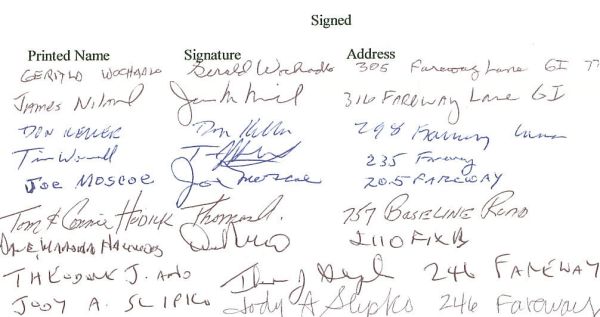 Signed
Printed Name Signature Address
GERALD WOCHADLO Gerald Wochadlo 305 Fareway Lane GI
James Niland 316 FAREWAY Lane GI
DON KELLER Don Keller 298 Fareway Lane
Tim 235 Fareway
JOE MOSCOE Joe Moscoe 205 FAREWAY
Tom & Connie HODICK Thomas 757 BASELINE ROAD
DAVE 2110 FIX
THEODORE J. 246 FAREWAY
JODY A. SLIPKO Jody A Slipko 246 Fareway